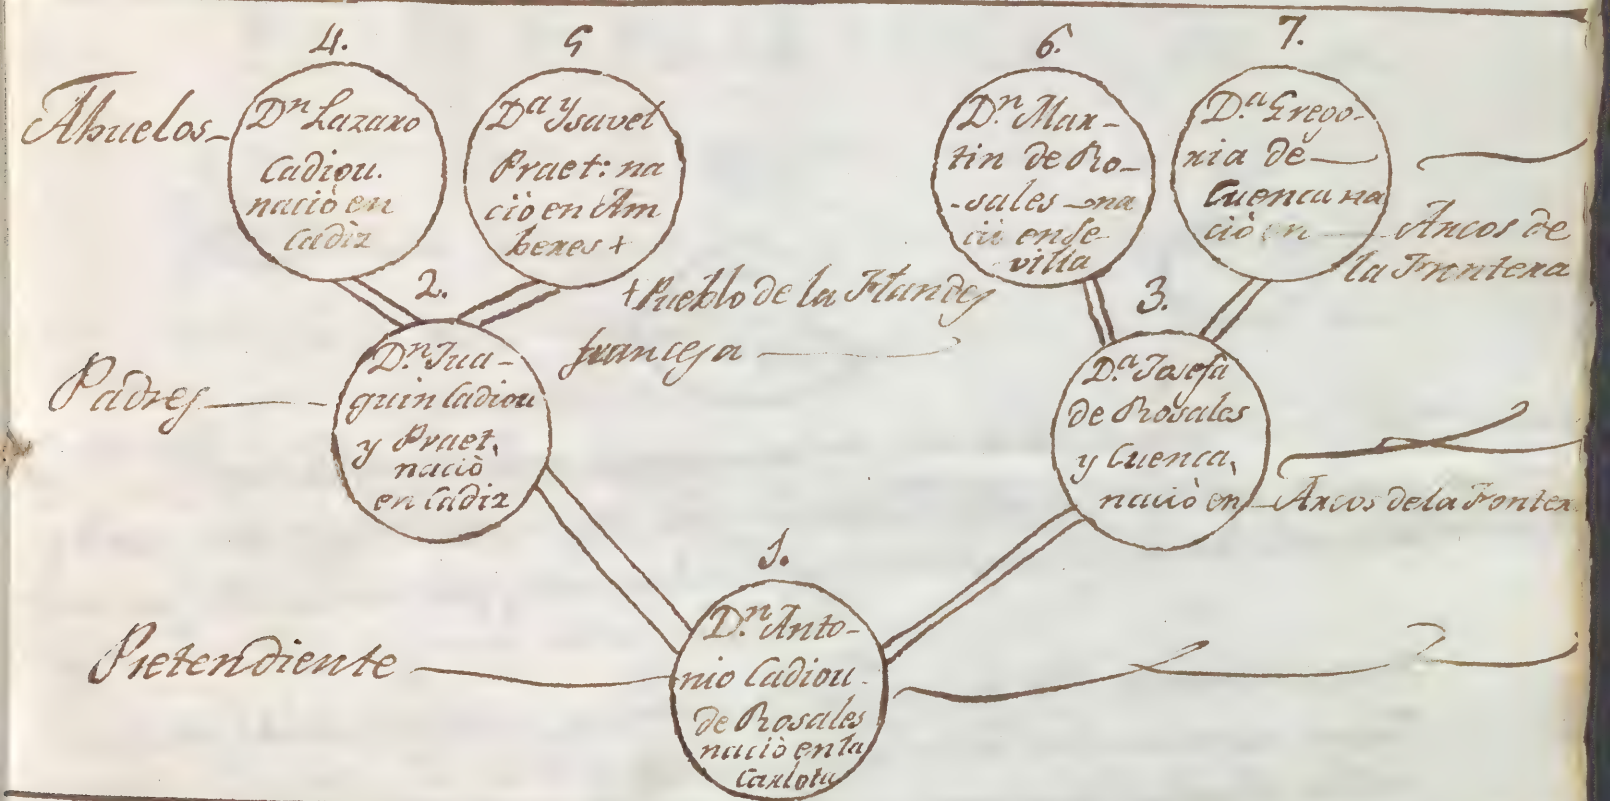 4.
Abuelos
Dn Lazaro
Cadiou.
naciò en
Cadiz
5
Da Ysavel
Praet: na
ciò en Am
beres +
+ Pueblo de la Flandes
francesa
6.
Dn. Mar-
tin de Ro-
-sales - na
ciò en Se
villa
7.
D.a Grego-
ria de
Cuenca na
ciò en Arcos de
la Frontera
Padres
2.
Dn. Jua-
quin Cadiou
y Praet,
naciò
en Cadiz
3.
D.a Josefa
de Rosales
y Cuenca,
naciò en Arcos de la Fronter
Pretendiente
1.
D.n Anto-
nio Cadiou
de Rosales
naciò en la
Carlota